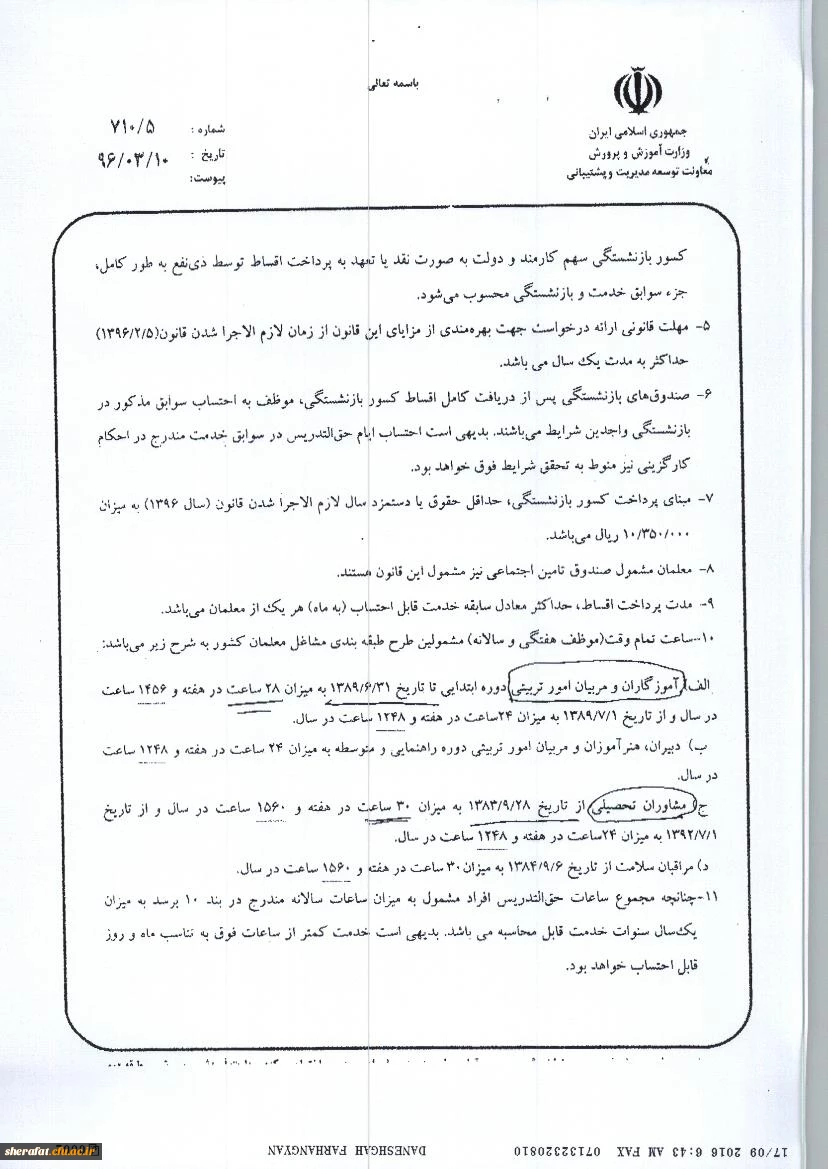 باسمه تعالی
جمهوری اسلامی ایران
وزارت آموزش و پرورش
معاونت توسعه مدیریت و پشتیبانی
شماره : ۷۱۰/۵
تاریخ : ۹۶/۰۳/۱۰
پیوست:
کسور بازنشستگی سهم کارمند و دولت به صورت نقد یا تعهد به پرداخت اقساط توسط ذی‌نفع به طور کامل،
جزء سوابق خدمت و بازنشستگی محسوب می‌شود.
۵- مهلت قانونی ارائه درخواست جهت بهره‌مندی از مزایای این قانون از زمان لازم الاجرا شدن قانون(۱۳۹۶/۲/۵)
حداکثر به مدت یک سال می باشد.
۶- صندوق‌های بازنشستگی پس از دریافت کامل اقساط کسور بازنشستگی، موظف به احتساب سوابق مذکور در
بازنشستگی واجدین شرایط می‌باشند. بدیهی است احتساب ایام حق‌التدریس در سوابق خدمت مندرج در احکام
کارگزینی نیز منوط به تحقق شرایط فوق خواهد بود.
۷- مبنای پرداخت کسور بازنشستگی، حداقل حقوق یا دستمزد سال لازم الاجرا شدن قانون (سال ۱۳۹۶) به میزان
۱۰/۳۵۰/۰۰۰ ریال می‌باشد.
۸- معلمان مشمول صندوق تامین اجتماعی نیز مشمول این قانون هستند.
۹- مدت پرداخت اقساط، حداکثر معادل سابقه خدمت قابل احتساب (به ماه) هر یک از معلمان می‌باشد.
۱۰-ساعت تمام وقت(موظف هفتگی و سالانه) مشمولین طرح طبقه بندی مشاغل معلمان کشور به شرح زیر می‌باشد:
الف) آموزگاران و مربیان امور تربیتی دوره ابتدایی تا تاریخ ۱۳۸۹/۶/۳۱ به میزان ۲۸ ساعت در هفته و ۱۴۵۶ ساعت
در سال و از تاریخ ۱۳۸۹/۷/۱ به میزان ۲۴ساعت در هفته و ۱۲۴۸ ساعت در سال.
ب) دبیران، هنرآموزان و مربیان امور تربیتی دوره راهنمایی و متوسطه به میزان ۲۴ ساعت در هفته و ۱۲۴۸ ساعت
در سال.
ج) مشاوران تحصیلی از تاریخ ۱۳۸۳/۹/۲۸ به میزان ۳۰ ساعت در هفته و ۱۵۶۰ ساعت در سال و از تاریخ
۱۳۹۲/۷/۱ به میزان ۲۴ساعت در هفته و ۱۲۴۸ ساعت در سال.
د) مراقبان سلامت از تاریخ ۱۳۸۴/۹/۶ به میزان ۳۰ ساعت در هفته و ۱۵۶۰ ساعت در سال.
۱۱-چنانچه مجموع ساعات حق‌التدریس افراد مشمول به میزان ساعات سالانه مندرج در بند ۱۰ برسد به میزان
یک‌سال سنوات خدمت قابل محاسبه می باشد. بدیهی است خدمت کمتر از ساعات فوق به تناسب ماه و روز
قابل احتساب خواهد بود.
17/09 2016 6:43 AM FAX 07132320810 DANESHGAH FARHANGYAN
sherafat.cfu.ac.ir